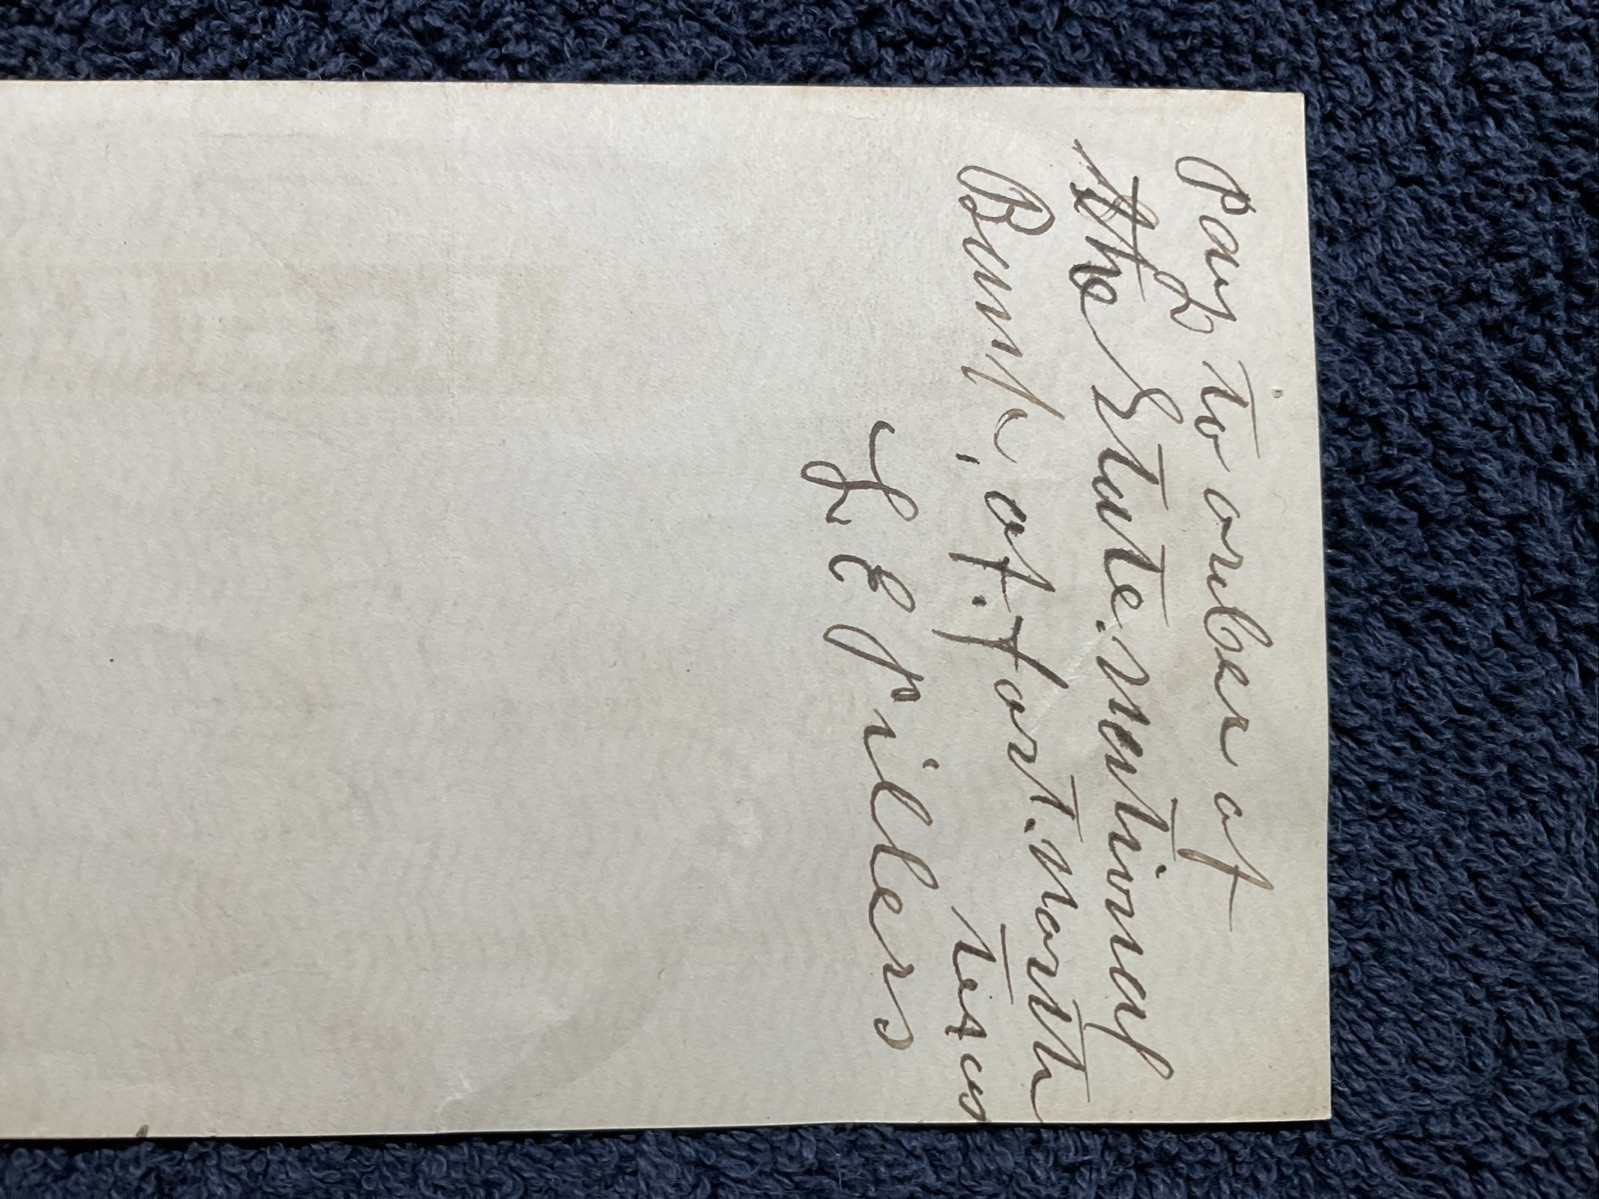 Pay to order of
the State. national
Bank, of. fort. worth
texas
L E Pillers